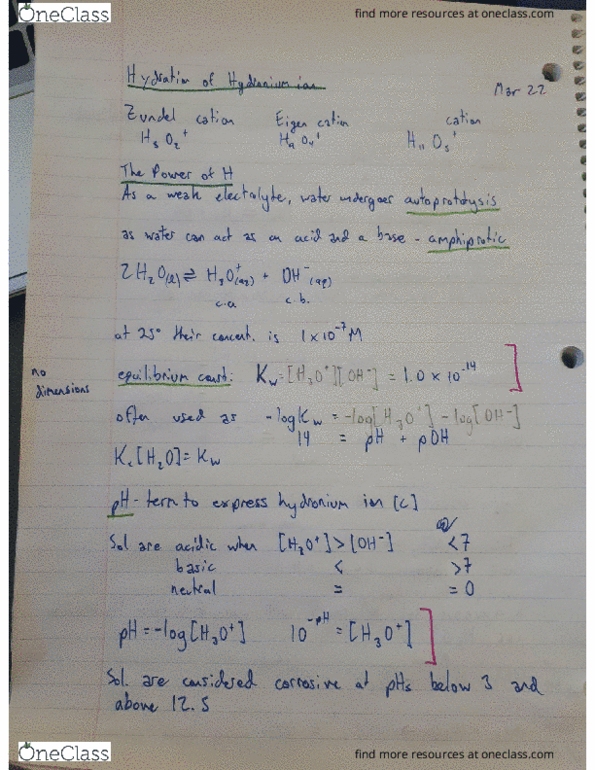 OneClass
find more resources at oneclass.com
Hydration of Hydronium ion
Mar 22
Zundel cation Eigen cation cation
H₅O₂⁺ H₉O₄⁺ H₁₁O₅⁺
The Power of H
As a weak electrolyte, water undergoes autoprotolysis
as water can act as an acid and a base - amphiprotic
2H₂O(l) ⇌ H₃O⁺(aq) + OH⁻(aq)
c.a. c.b.
at 25° their concent. is 1×10⁻⁷M
no dimensions
equilibrium const: Kw=[H₃O⁺][OH⁻] = 1.0 × 10⁻¹⁴
often used as -logKw = -log[H₃O⁺] - log[OH⁻]
14 = pH + pOH
[H₂O] = Kw
pH - term to express hydronium ion [c]
Sol are acidic when [H₃O⁺] > [OH⁻] <7
basic < >7
neutral = = 0
pH = -log[H₃O⁺] 10⁻ᵖᴴ = [H₃O⁺]
Sol. are considered corrosive at pHs below 3 and
above 12.5
OneClass
find more resources at oneclass.com